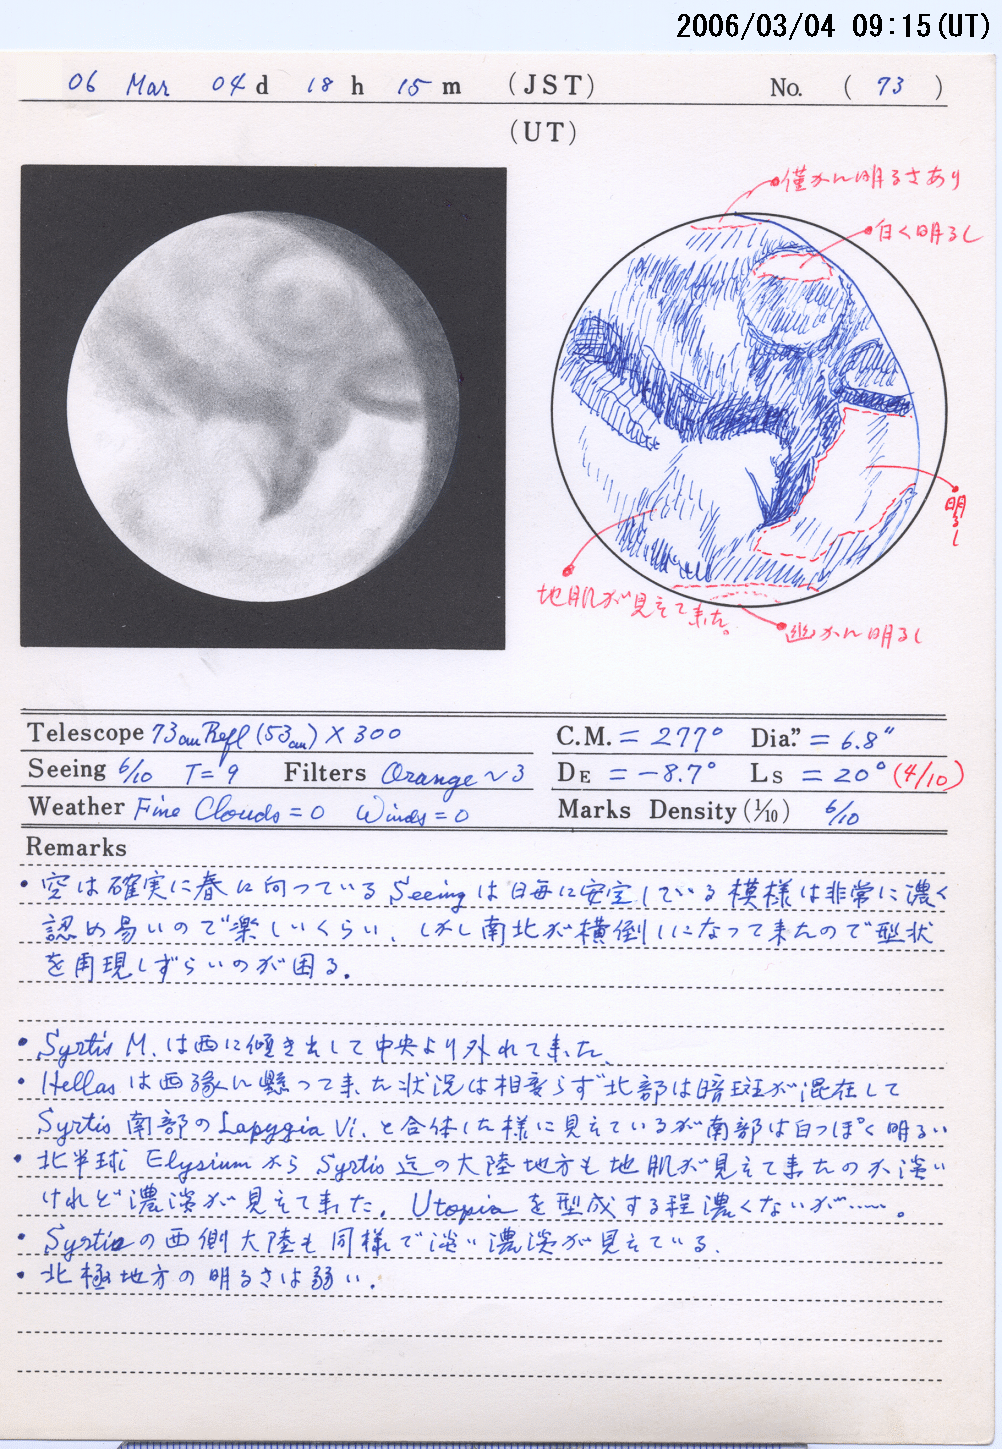 2006/03/04 09:15(UT)
06 Mar 04 d 18 h 15 m (JST) No. ( 73 )
(UT)
僅かに明るさあり
白く明るし
明るし
地肌が見えて来た。
幽かに明るし
Telescope 73cm Refl (53cm) X 300
C.M. = 277° Dia." = 6.8"
Seeing 6/10 T = 9 Filters Orange ~ 3
DE = -8.7° Ls = 20° (4/10)
Weather Fine Clouds = 0 Winds = 0
Marks Density (1/10) 6/10
Remarks
・空は確実に春に向っている Seeing は日毎に安定している 模様は非常に濃く
認め易いので楽しいくらい、しかし南北が横倒しになって来たので型状
を再現しずらいのが困る.
・Syrtis M. は西に傾き出して中央より外れて来た、
・Hellas は西縁に懸って来た状況は相変らず北部は暗斑が混在して
Syrtis 南部の Iapygia Vi. と合体した様に見えているが南部は白っぽく明るい
・北半球 Elysium から Syrtis 迄の大陸地方も地肌が見えて来たのか淡い
けれど濃淡が見えて来た. Utopia を型成する程濃くないが……。
・Syrtis の西側大陸も同様で淡い濃淡が見えている.
・北極地方の明るさは弱い.